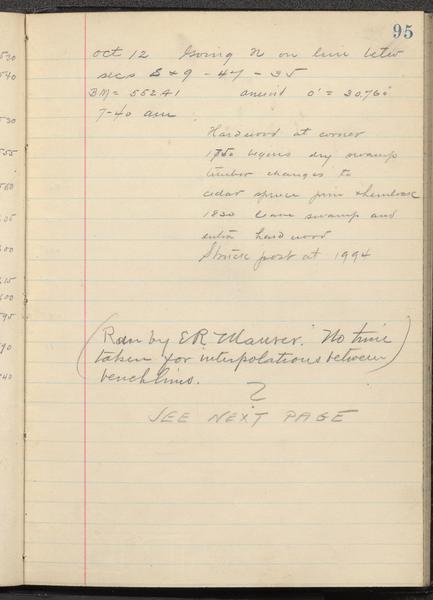 530
540
530
555
560
535
600
615
600
595
590
540
95
Oct 12 Going N on line betw
secs 8 & 9 - 47 - 35
BM = 552.41 aneroid 0' = 30.760
7-40 am
Hardwood at corner
1750 begins dry swamp
timber changes to
cedar spruce pine & hemlock
1830 leave swamp and
enter hard wood
Struck post at 1994
(Run by E.R. Maurer. No time
taken for interpolations between
bench lines.)
?
SEE NEXT PAGE